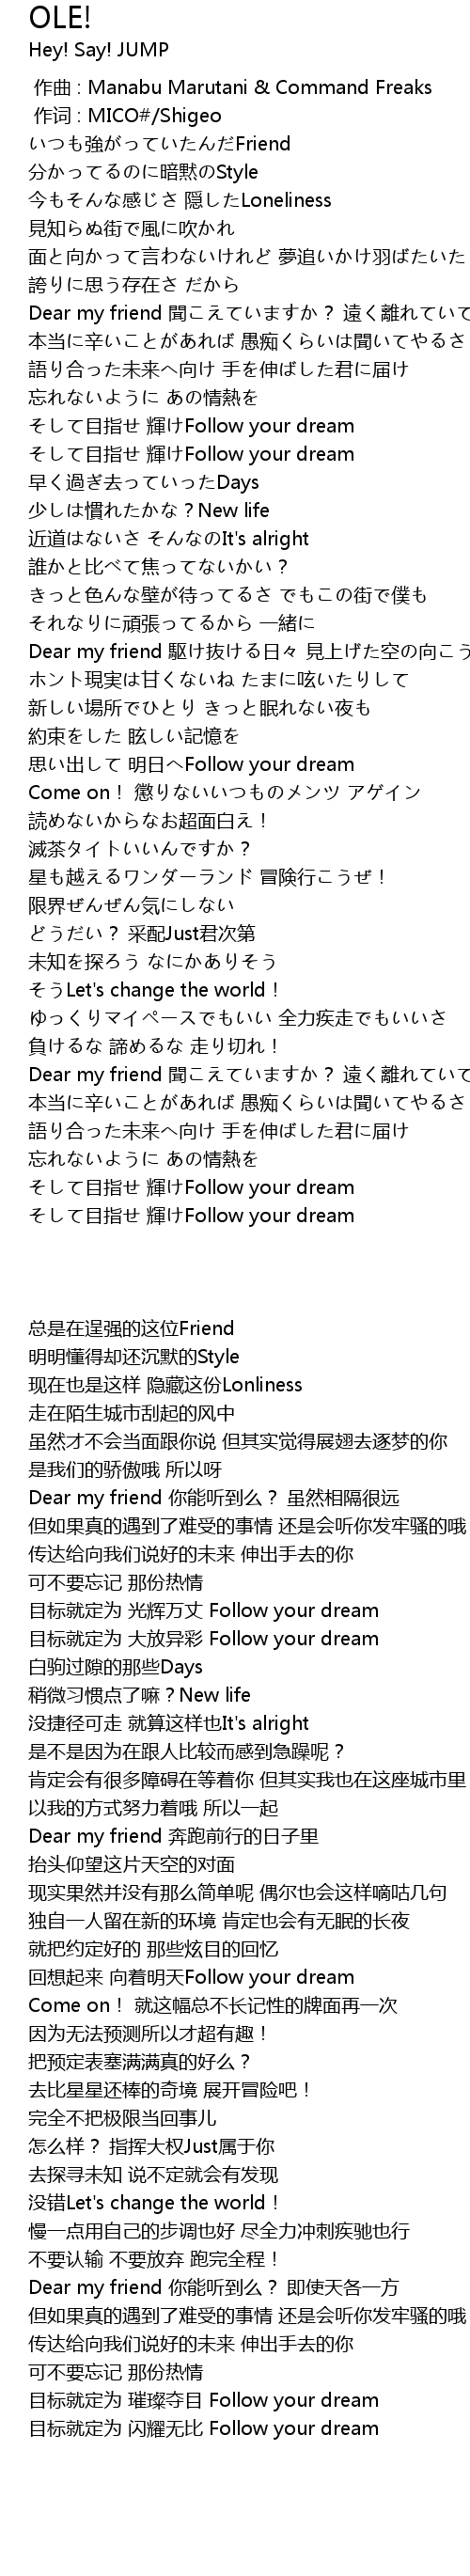 OLE!
Hey! Say! JUMP
作曲 : Manabu Marutani & Command Freaks
作词 : MICO#/Shigeo
いつも強がっていたんだFriend
分かってるのに暗黙のStyle
今もそんな感じさ 隠したLoneliness
見知らぬ街で風に吹かれ
面と向かって言わないけれど 夢追いかけ羽ばたいた
誇りに思う存在さ だから
Dear my friend 聞こえていますか？ 遠く離れていて
本当に辛いことがあれば 愚痴くらいは聞いてやるさ
語り合った未来へ向け 手を伸ばした君に届け
忘れないように あの情熱を
そして目指せ 輝けFollow your dream
そして目指せ 輝けFollow your dream
早く過ぎ去っていったDays
少しは慣れたかな？New life
近道はないさ そんなのIt's alright
誰かと比べて焦ってないかい？
きっと色んな壁が待ってるさ でもこの街で僕も
それなりに頑張ってるから 一緒に
Dear my friend 駆け抜ける日々 見上げた空の向こう
ホント現実は甘くないね たまに呟いたりして
新しい場所でひとり きっと眠れない夜も
約束をした 眩しい記憶を
思い出して 明日へFollow your dream
Come on！ 懲りないいつものメンツ アゲイン
読めないからなお超面白え！
滅茶タイトいいんですか？
星も越えるワンダーランド 冒険行こうぜ！
限界ぜんぜん気にしない
どうだい？ 采配Just君次第
未知を探ろう なにかありそう
そうLet's change the world！
ゆっくりマイペースでもいい 全力疾走でもいいさ
負けるな 諦めるな 走り切れ！
Dear my friend 聞こえていますか？ 遠く離れていて
本当に辛いことがあれば 愚痴くらいは聞いてやるさ
語り合った未来へ向け 手を伸ばした君に届け
忘れないように あの情熱を
そして目指せ 輝けFollow your dream
そして目指せ 輝けFollow your dream
总是在逞强的这位Friend
明明懂得却还沉默的Style
现在也是这样 隐藏这份Lonliness
走在陌生城市刮起的风中
虽然才不会当面跟你说 但其实觉得展翅去逐梦的你
是我们的骄傲哦 所以呀
Dear my friend 你能听到么？ 虽然相隔很远
但如果真的遇到了难受的事情 还是会听你发牢骚的哦
传达给向我们说好的未来 伸出手去的你
可不要忘记 那份热情
目标就定为 光辉万丈 Follow your dream
目标就定为 大放异彩 Follow your dream
白驹过隙的那些Days
稍微习惯点了嘛？New life
没捷径可走 就算这样也It's alright
是不是因为在跟人比较而感到急躁呢？
肯定会有很多障碍在等着你 但其实我也在这座城市里
以我的方式努力着哦 所以一起
Dear my friend 奔跑前行的日子里
抬头仰望这片天空的对面
现实果然并没有那么简单呢 偶尔也会这样嘀咕几句
独自一人留在新的环境 肯定也会有无眠的长夜
就把约定好的 那些炫目的回忆
回想起来 向着明天Follow your dream
Come on！ 就这幅总不长记性的牌面再一次
因为无法预测所以才超有趣！
把预定表塞满满真的好么？
去比星星还棒的奇境 展开冒险吧！
完全不把极限当回事儿
怎么样？ 指挥大权Just属于你
去探寻未知 说不定就会有发现
没错Let's change the world！
慢一点用自己的步调也好 尽全力冲刺疾驰也行
不要认输 不要放弃 跑完全程！
Dear my friend 你能听到么？ 即使天各一方
但如果真的遇到了难受的事情 还是会听你发牢骚的哦
传达给向我们说好的未来 伸出手去的你
可不要忘记 那份热情
目标就定为 璀璨夺目 Follow your dream
目标就定为 闪耀无比 Follow your dream